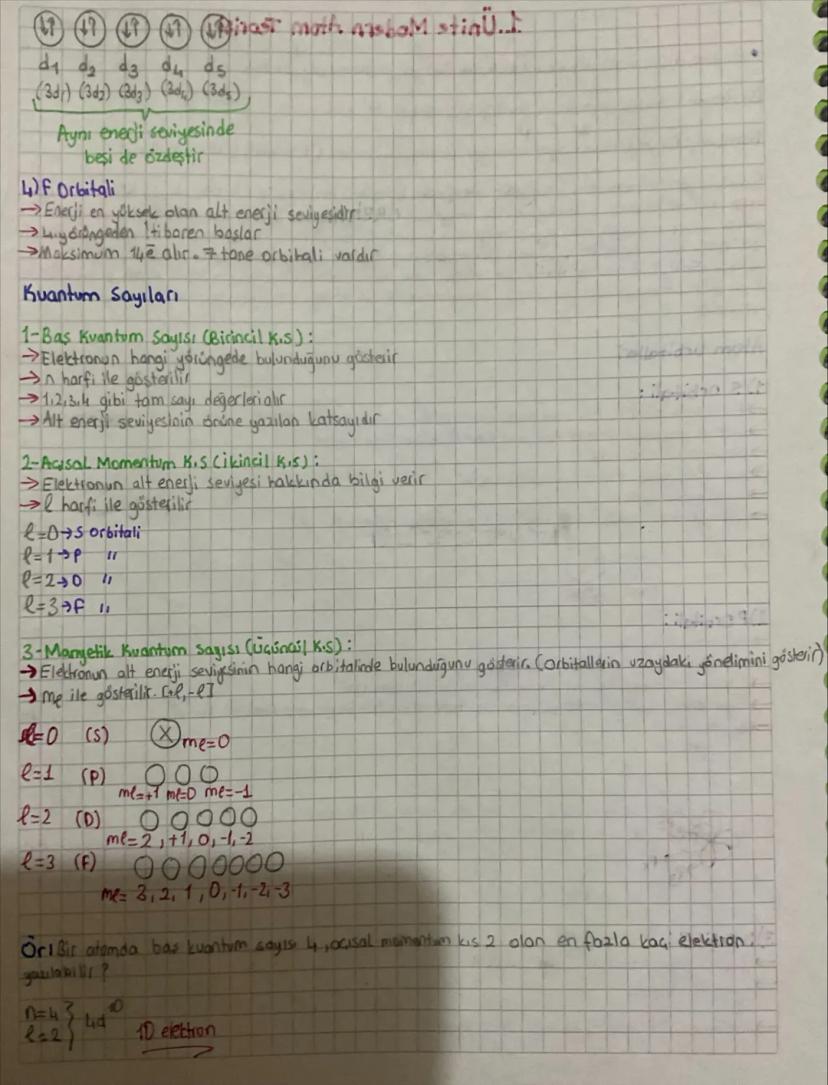 1.Ünite Modern Atom Teorisi
d1 d2 d3 d4 d5
(3d1) (3d2) (3d3) (3d4) (3d5)
Aynı enerji seviyesinde
beşi de özdeştir
4)F Orbitali
→Enerji en yüksek olan alt enerji seviyesidir
→4.yörüngeden itibaren başlar
→Maksimum 14ē alır. 7 tane orbitali vardır
Kuantum Sayıları
1-Baş Kuantum Sayısı (Birincil K.S):
→Elektronun hangi yörüngede bulunduğunu gösterir
→n harfi ile gösterilir
→1,2,3,4 gibi tam sayı değerleri alır
→Alt enerji seviyesinin önüne yazılan katsayıdır
2-Açısal Momentum K.S (ikincil K.S):
→Elektronun alt enerji seviyesi hakkında bilgi verir
→ℓ harfi ile gösterilir
ℓ=0→S orbitali
ℓ=1→P "
ℓ=2→D "
ℓ=3→F "
3-Manyetik Kuantum Sayısı (Üçüncül K.S):
→Elektronun alt enerji seviyesinin hangi orbitalinde bulunduğunu gösterir. (orbitallerin uzaydaki yönelimini gösterir)
→mℓ ile gösterilir. [+ℓ,-ℓ]
ℓ=0 (S) X mℓ=0
ℓ=1 (P)
mℓ=+1 mℓ=0 mℓ=-1
ℓ=2 (D)
mℓ=2,+1,0,-1,-2
ℓ=3 (F)
mℓ=3,2,1,0,-1,-2,-3
Ör| Bir atomda baş kuantum sayısı 4, açısal momentum k.s 2 olan en fazla kaç elektron
yazılabilir?
n=4
ℓ=2 } 4d¹⁰ 10 elektron